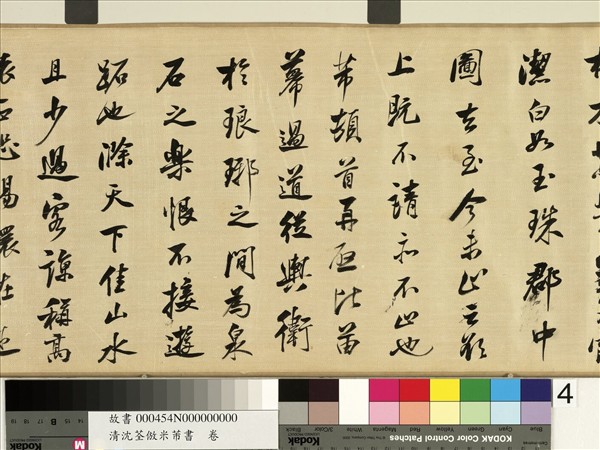 潔白如玉珠郡中
圖去至今未止云欲
上既不請亦不止也
芾頓首再啟比留
幕過道從輿衛
於琅琊之間為泉
石之樂恨不接遊
跖也滁天下佳山水
且少過客諒稱高
表石恐易農在
故書 000454N000000000
清沈荃倣米芾書 卷
4
Kodak
KODAK Color Control Patches
Blue
Cyan
Green
Yellow
Red
Magenta
White
3/Color
Black
B
M